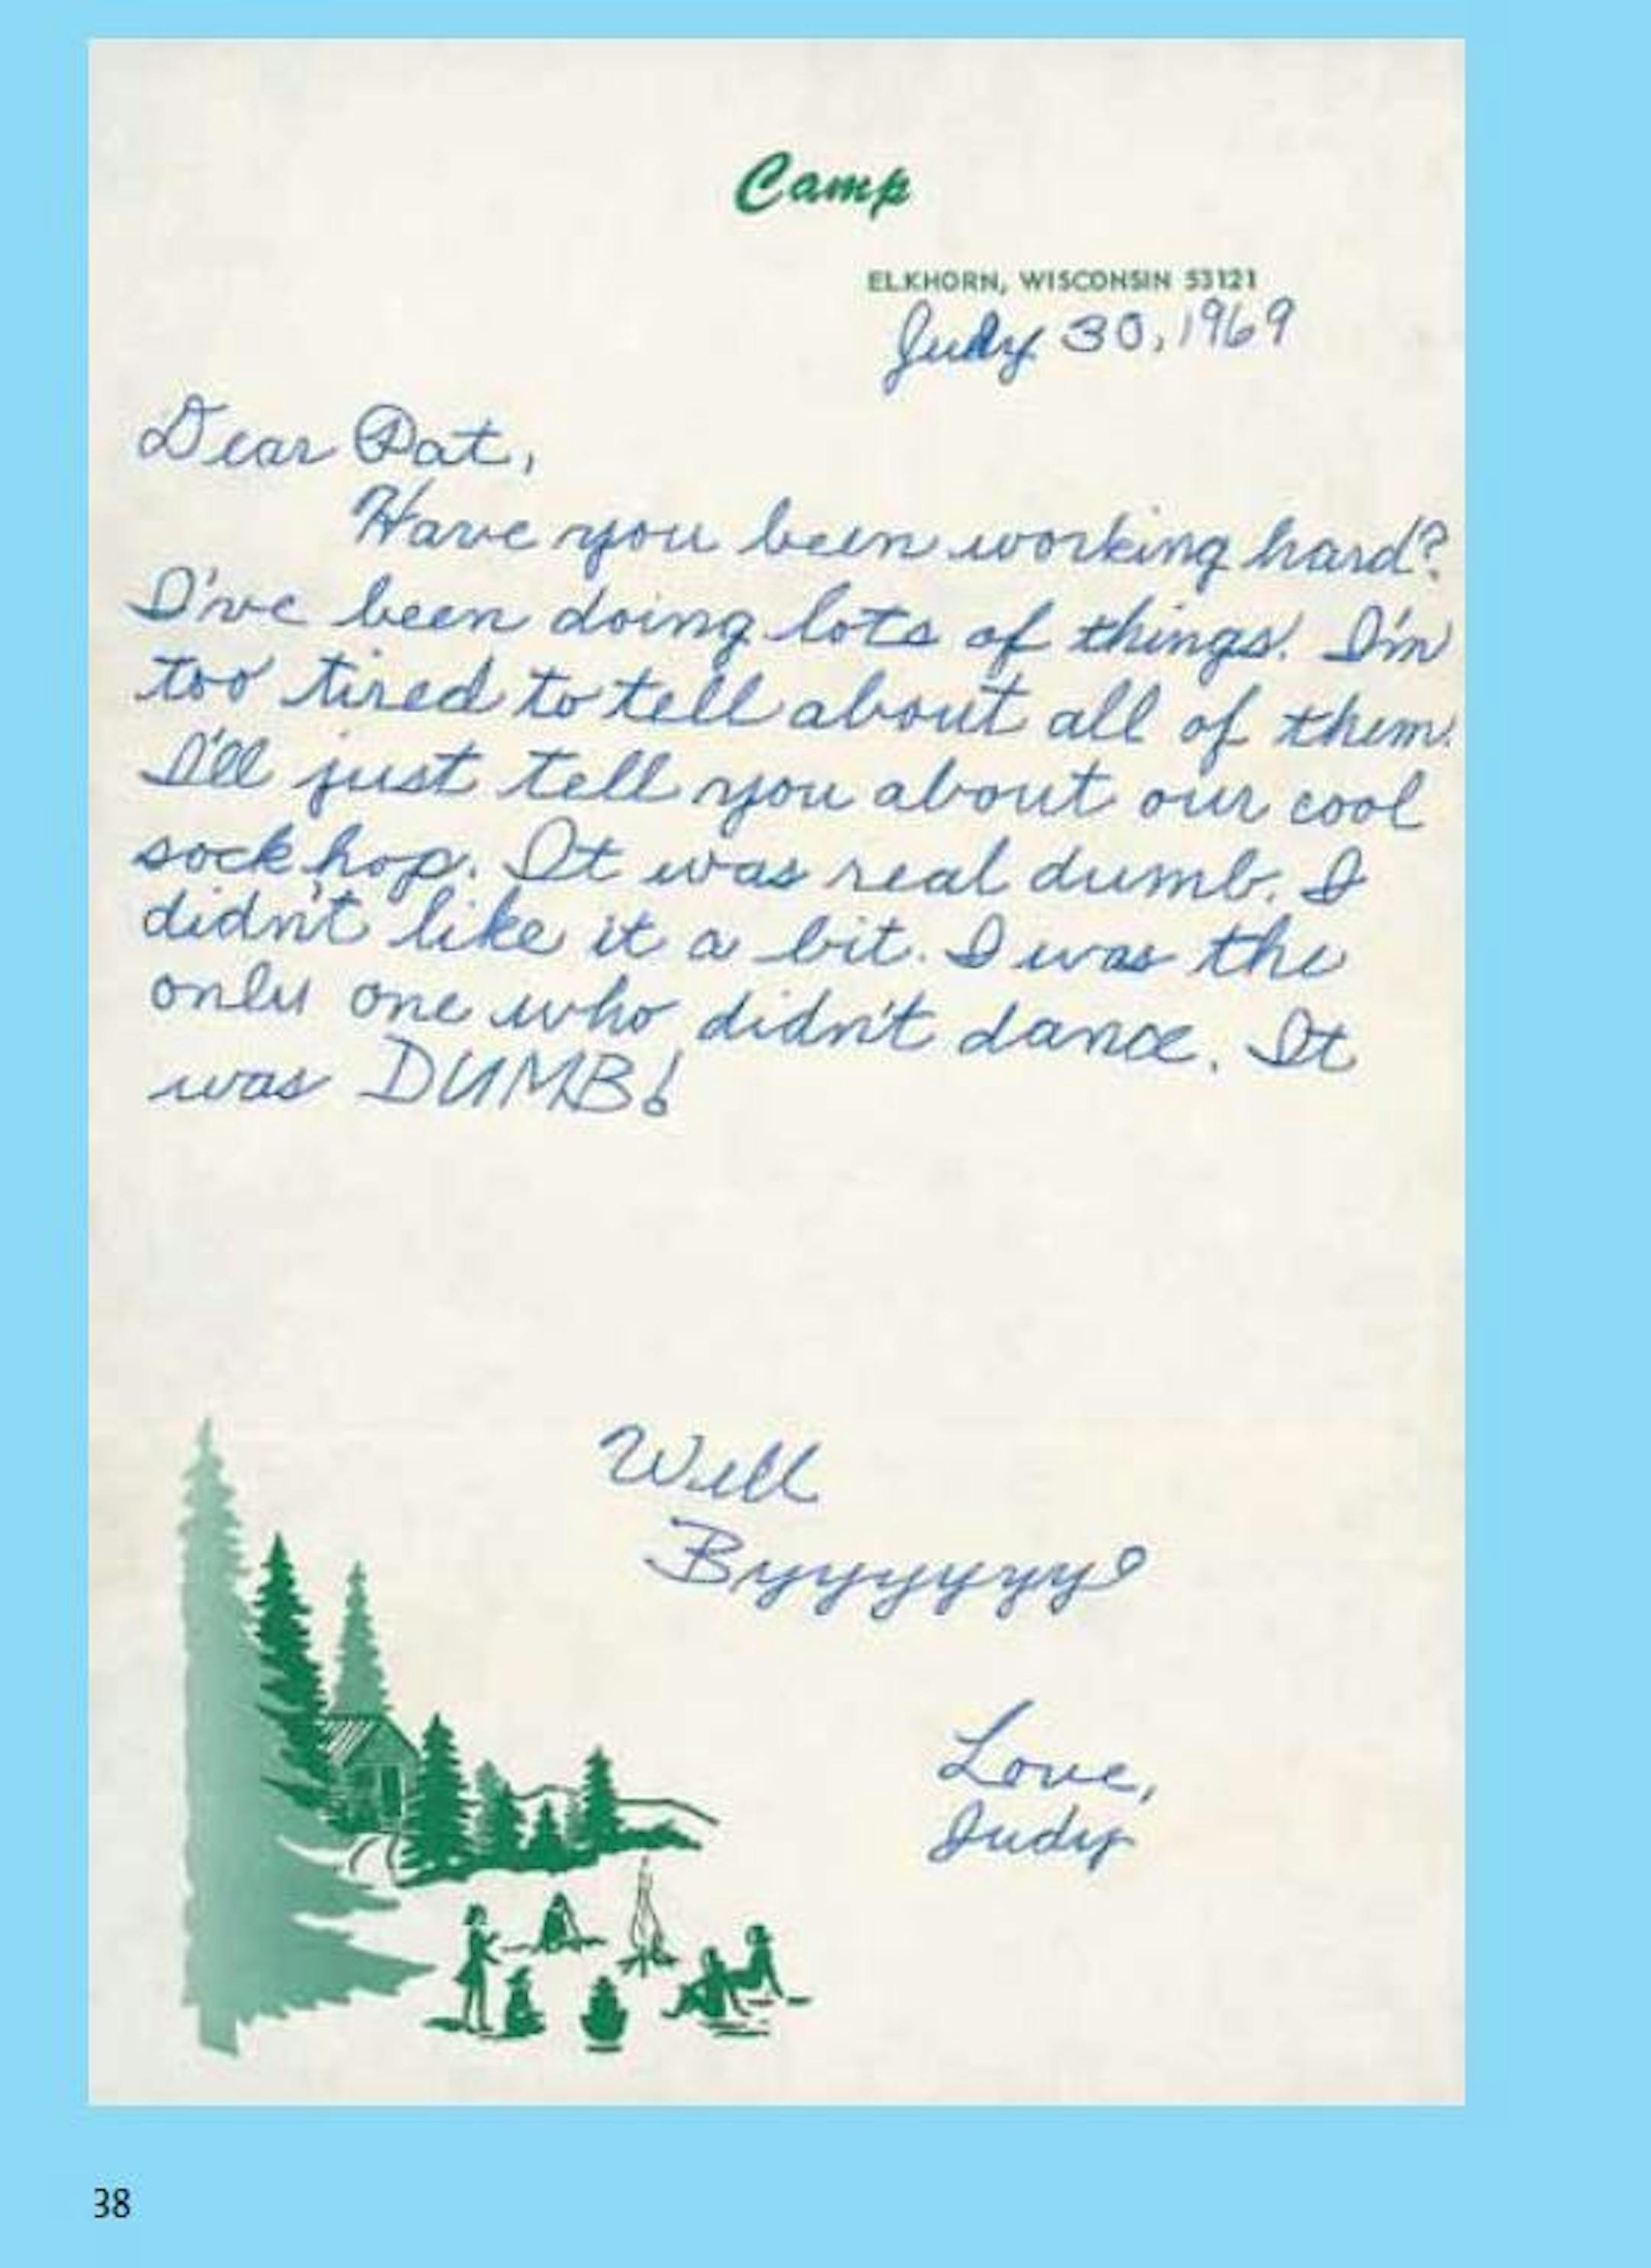 Camp
ELKHORN, WISCONSIN 53121
July 30, 1969
Dear Pat,
Have you been working hard?
I've been doing lots of things. I'm
too tired to tell about all of them.
I'll just tell you about our cool
sock hop. It was real dumb. I
didn't like it a bit. I was the
only one who didn't dance. It
was DUMB!
Well
Byyyyyye
Love,
Judy
38